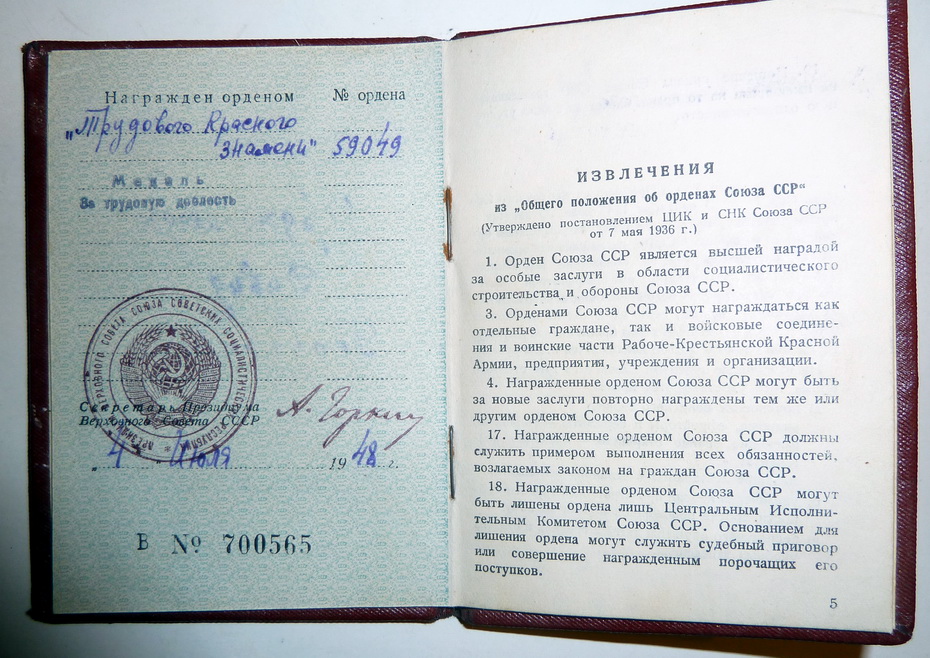 Награжден орденом № ордена
„Трудового Красного
Знамени" 59049
Медаль
За трудовую доблесть
Секретарь Президиума
Верховного Совета СССР
А. Горкин
„4" Июля 1948 г.
В № 700565
ИЗВЛЕЧЕНИЯ
из „Общего положения об орденах Союза ССР“
(Утверждено постановлением ЦИК и СНК Союза ССР
от 7 мая 1936 г.)
1. Орден Союза ССР является высшей наградой
за особые заслуги в области социалистического
строительства и обороны Союза ССР.
3. Орденами Союза ССР могут награждаться как
отдельные граждане, так и войсковые соедине-
ния и воинские части Рабоче-Крестьянской Красной
Армии, предприятия, учреждения и организации.
4. Награжденные орденом Союза ССР могут быть
за новые заслуги повторно награждены тем же или
другим орденом Союза ССР.
17. Награжденные орденом Союза ССР должны
служить примером выполнения всех обязанностей,
возлагаемых законом на граждан Союза ССР.
18. Награжденные орденом Союза ССР могут
быть лишены ордена лишь Центральным Исполни-
тельным Комитетом Союза ССР. Основанием для
лишения ордена могут служить судебный приговор
или совершение награжденным порочащих его
поступков.
5